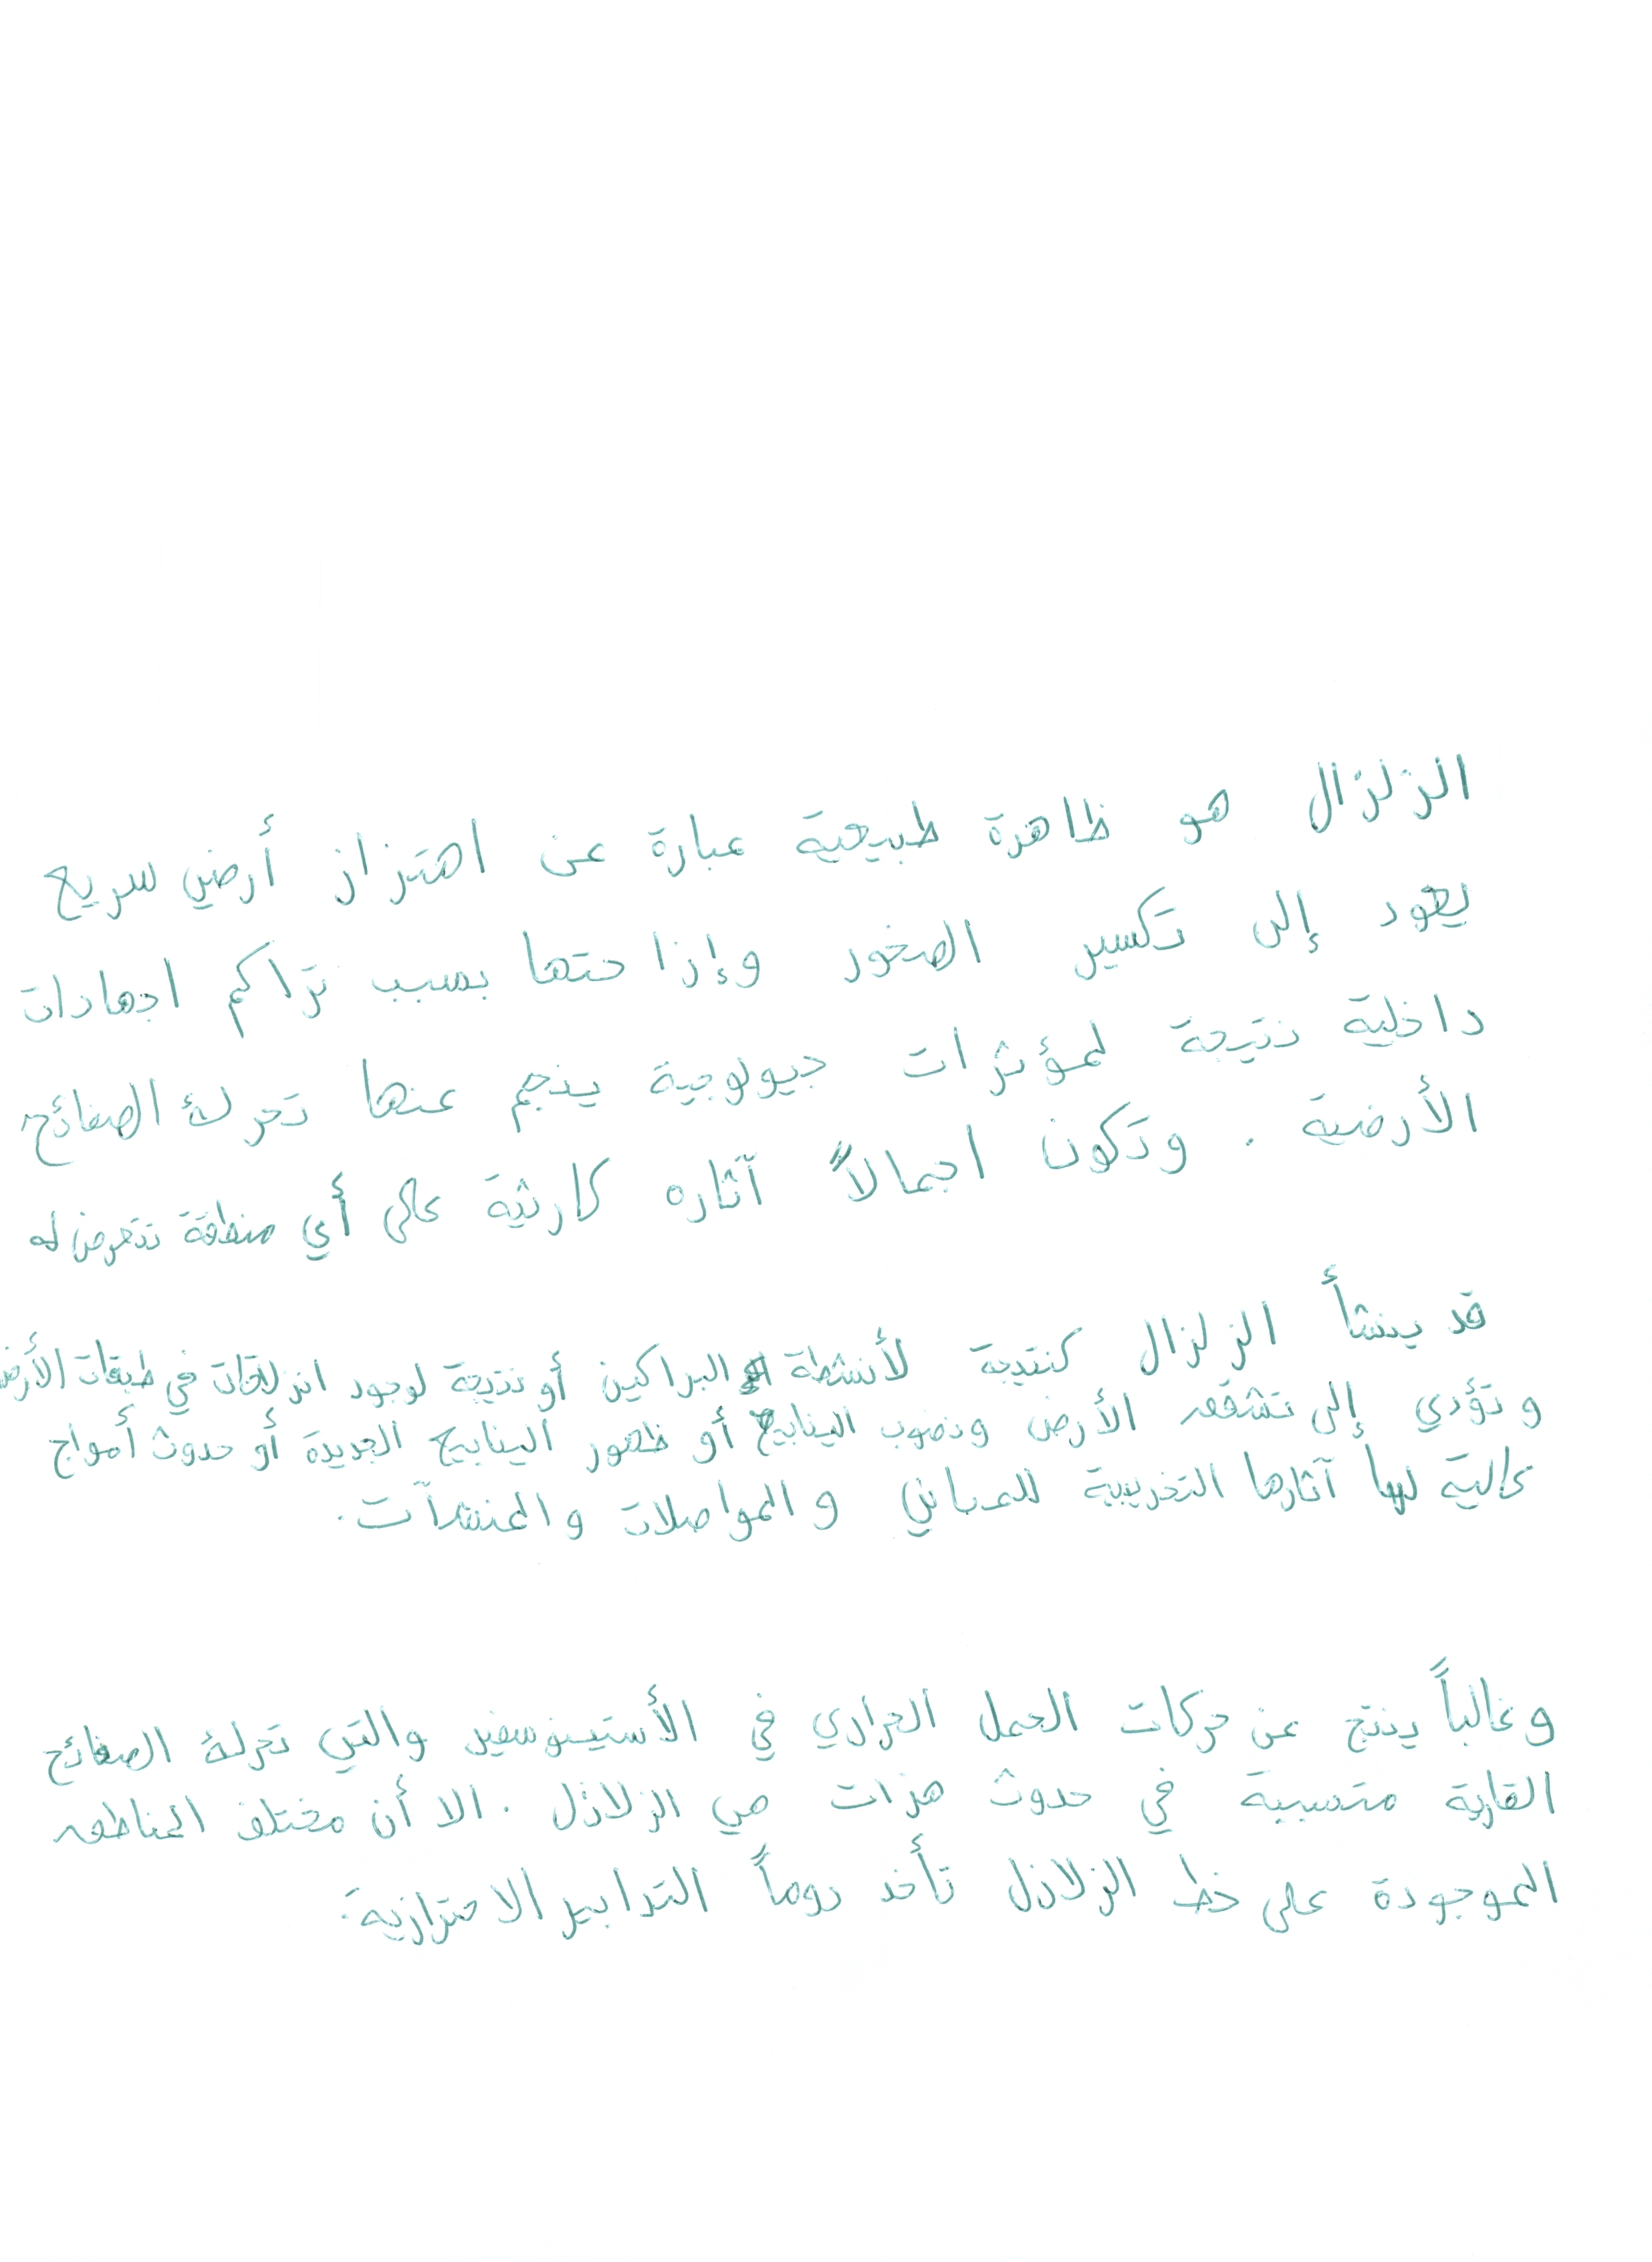 الزلزال هو ظاهرة طبيعية عبارة عن اهتزاز أرضي سريع
يعود إلى تكسير الصخور وإزاحتها بسبب تراكم اجهادات
داخلية نتيجة لمؤثرات جيولوجية ينجم عنها تحرك الصفائح
الأرضية . وتكون اجمالاً آثاره كارثية على أي منطقة تتعرض له
قد ينشأ الزلزال كنتيجة لأنشطة البراكين أو نتيجة لوجود انزلاقات في طبقات الأرض
وتؤدي إلى تشقق الأرض ونضوب الينابيع أو ظهور الينابيع الجديدة أو حدوث أمواج
عالية لها آثارها التخريبية للمباني والمواصلات والمنشآت.
وغالباً ينتج عن حركات الحمل الحراري في الأستينوسفير والتي تحرك الصفائح
القارية متسببة في حدوث هزات هي الزلازل . الا أن مختلف المناطق
الموجودة على خط الزلازل تأخذ دوماً التدابير الاحترازية.